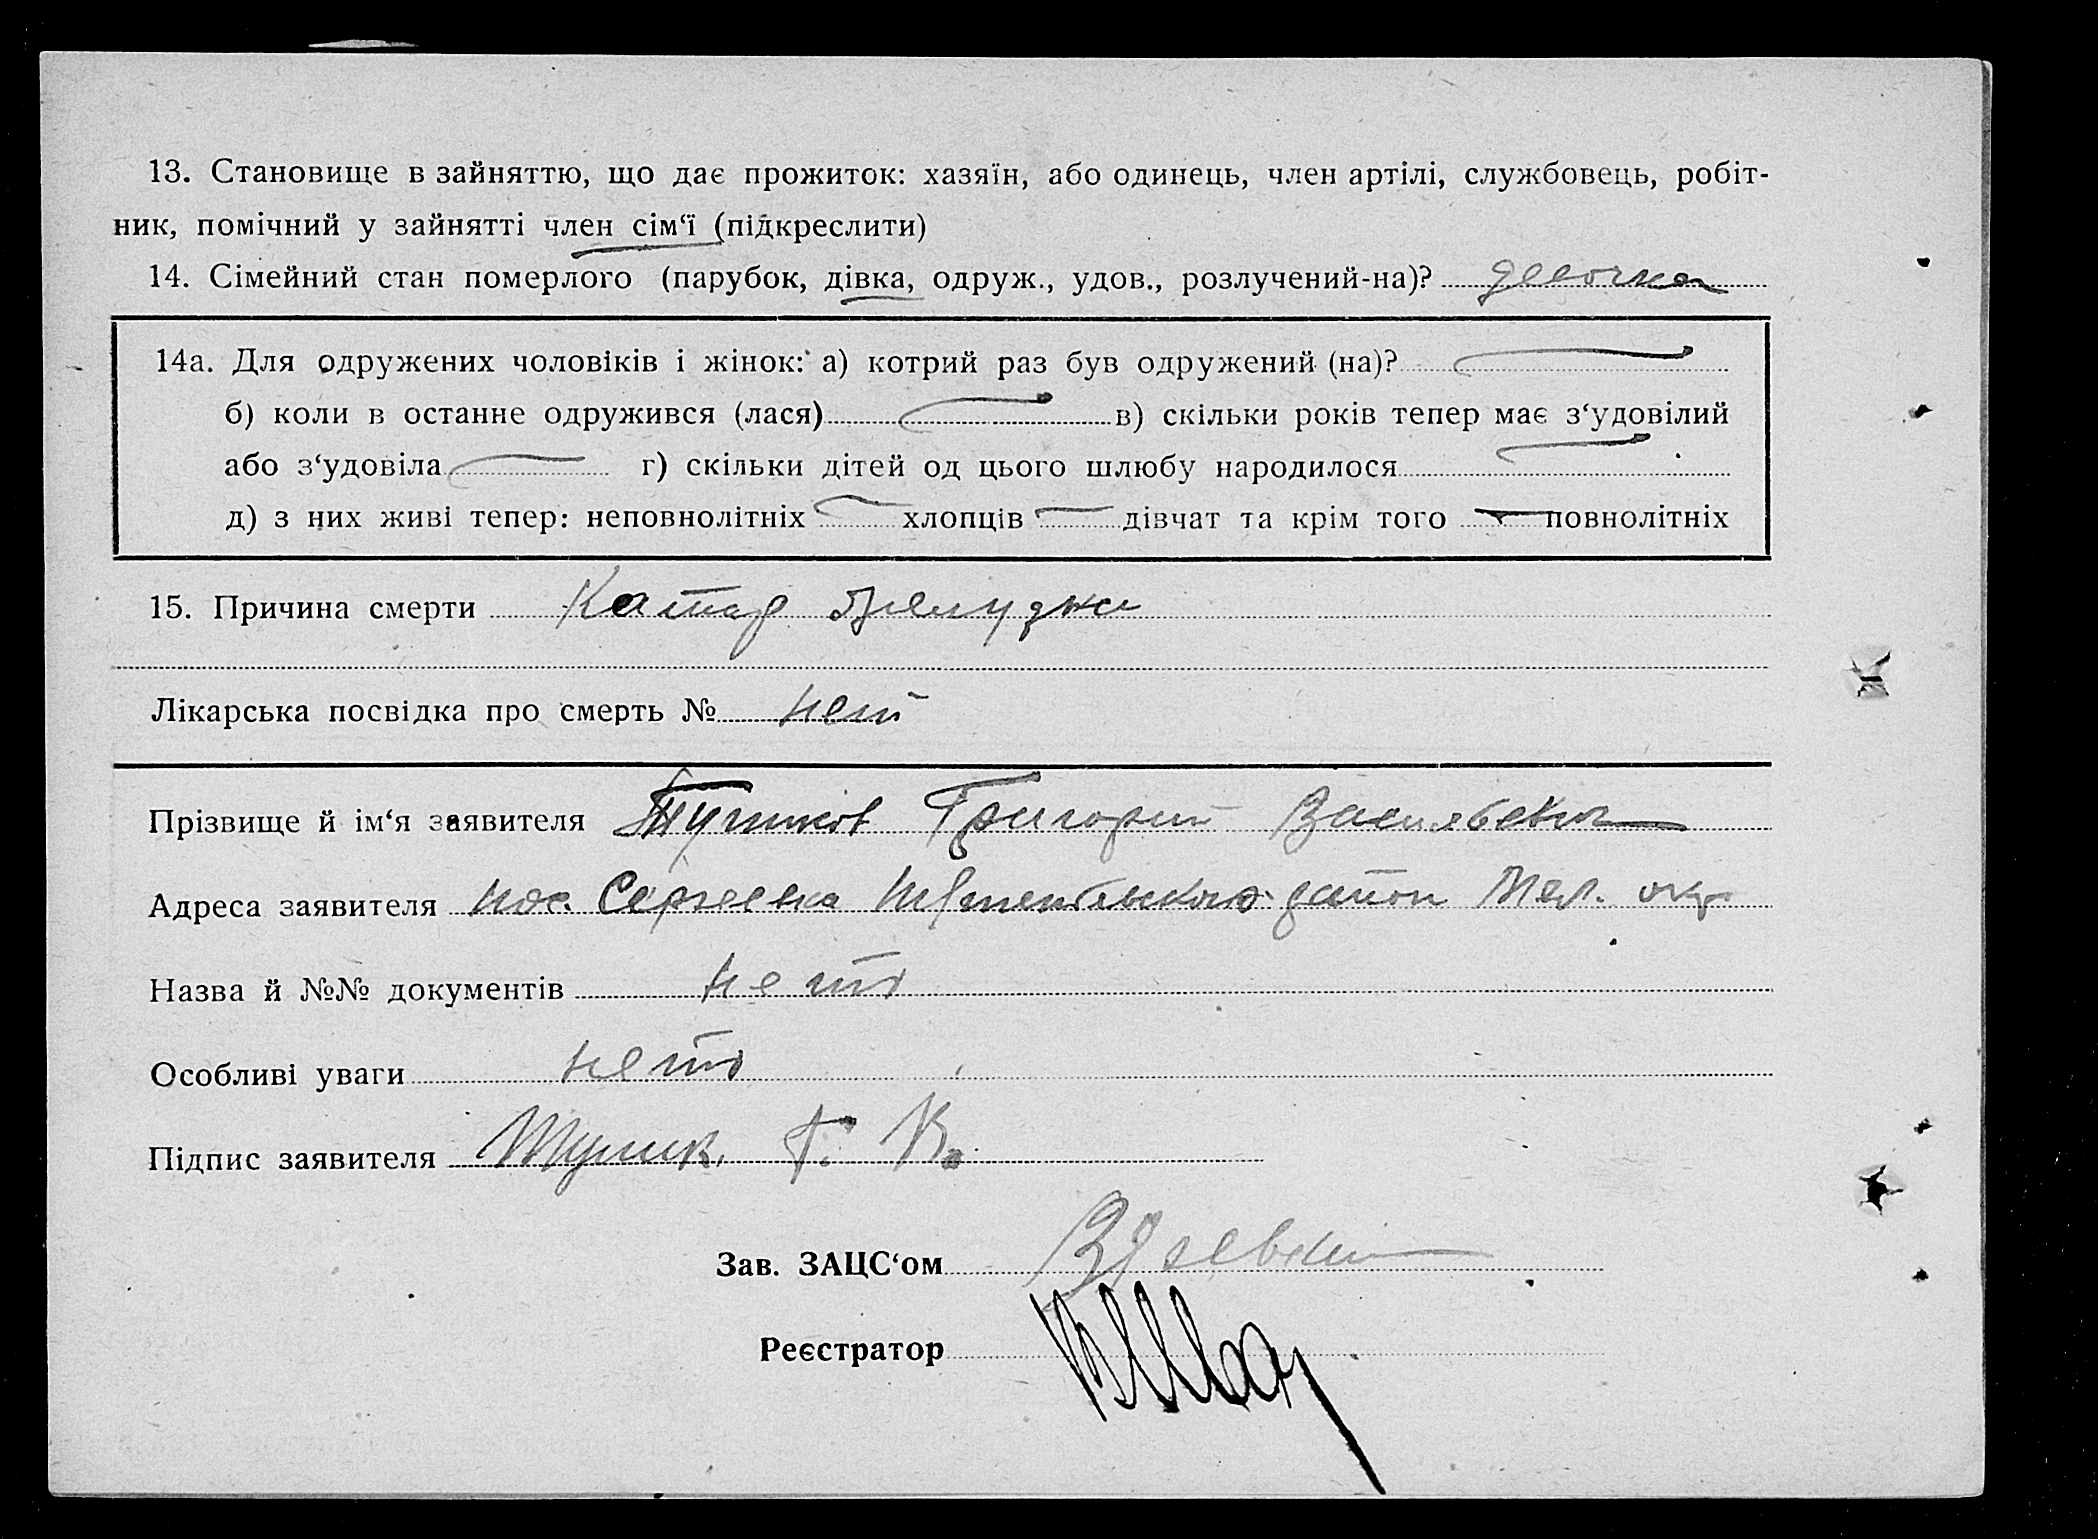 13. Становище в зайняттю, що дає прожиток: хазяїн, або одинець, член артілі, службовець, робіт-
ник, помічний у зайнятті член сім‘ї (підкреслити)
14. Сімейний стан померлого (парубок, дівка, одруж., удов., розлучений-на)? девочка
14а. Для одружених чоловіків і жінок: а) котрий раз був одружений (на)?
б) коли в останне одружився (лася) в) скільки років тепер має з‘удовілий
або з‘удовіла г) скільки дітей од цього шлюбу народилося
д) з них живі тепер: неповнолітніх хлопців дівчат та крім того повнолітніх
15. Причина смерти Катар
Лікарська посвідка про смерть № нет
Прізвище й ім‘я заявителя Григорий
Адреса заявителя Сергеевка район Мел. окр.
Назва й №№ документів нет
Особливі уваги нет
Підпис заявителя Г. В.
Зав. ЗАЦС‘ом
Реєстратор